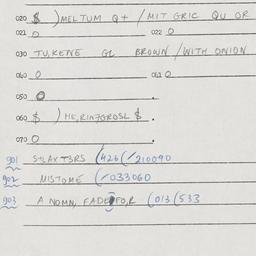 020 $ ) MELTUM Q+ / MIT GRIC QU OR
021 0 022 0
030 TU,KENE GL BROWN / WITH ONION
040 0 041 0
050 0
060 $ ) HE,RIN7GROSL $ .
070 0 .
901 STLAXT3RS (426 (/210090
902 MISTOME (/033060
903 A NOMN, FADE FO,R (013 (533